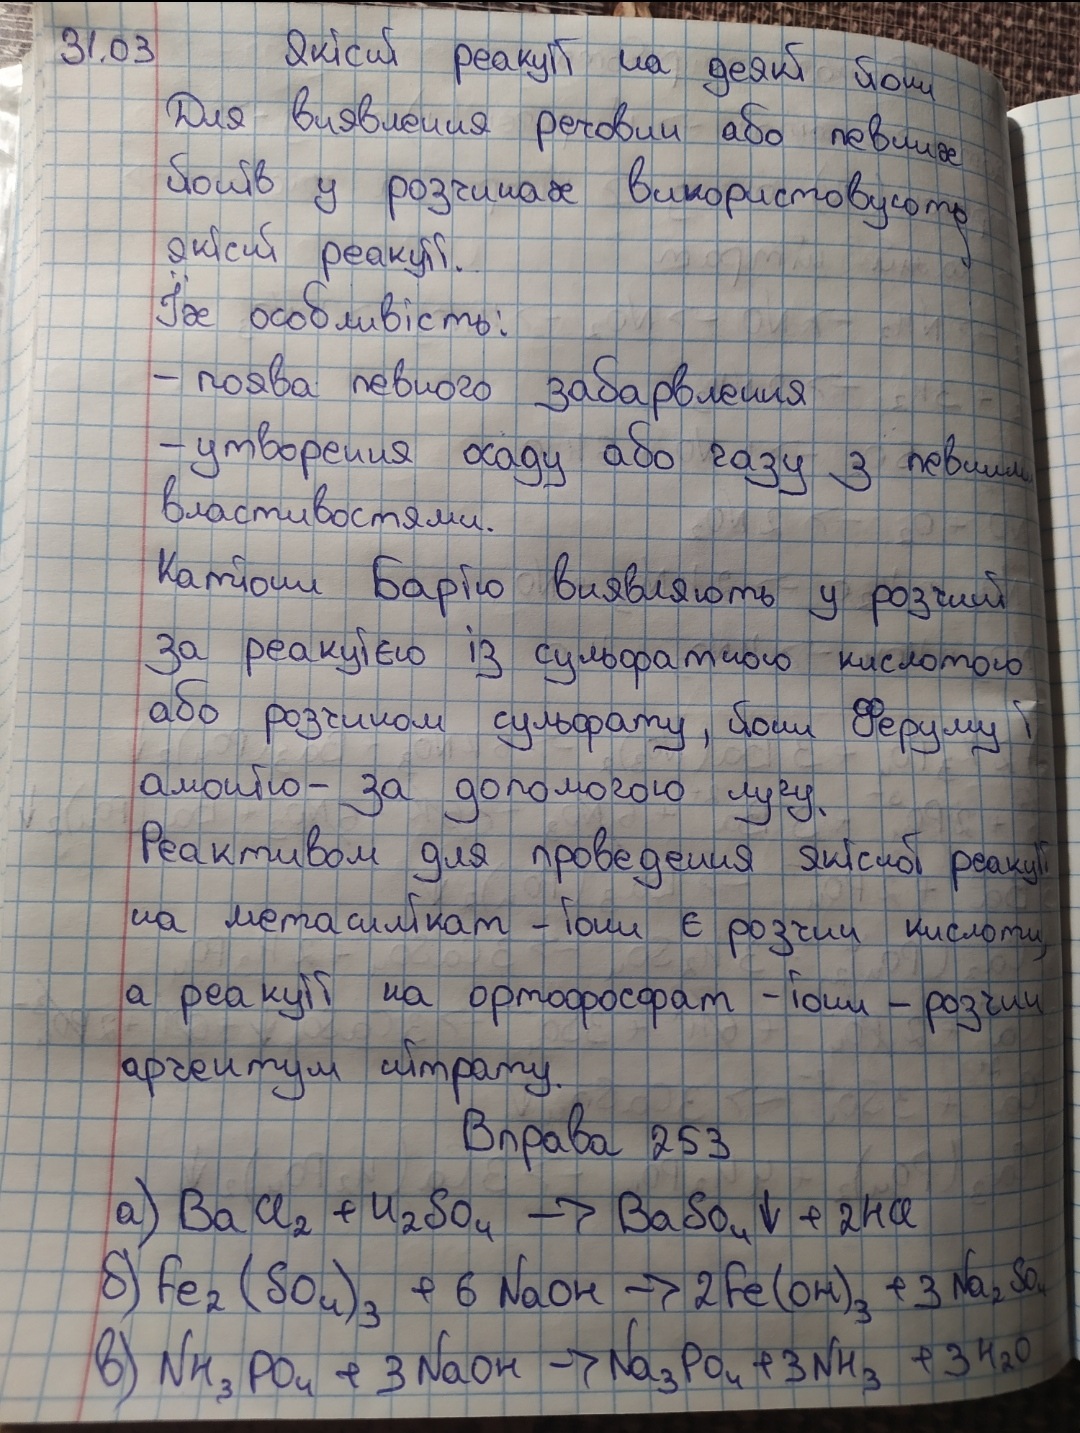 31.03 Якісні реакції на деякі йони
Для виявлення речовин або певних
йонів у розчинах використовують
якісні реакції.
Їх особливість:
- поява певного забарвлення
- утворення осаду або газу з певними
властивостями.
Катіони Барію виявляють у розчині
за реакцією із сульфатною кислотою
або розчином сульфату, йони Феруму і
амонію - за допомогою лугу.
Реактивом для проведення якісної реакції
на метасилікат - іони є розчин кислоти,
а реакції на ортофосфат - іони - розчин
аргентум нітрату.
Вправа 253
а) BaCl₂ + H₂SO₄ → BaSO₄↓ + 2HCl
б) Fe₂(SO₄)₃ + 6 NaOH → 2Fe(OH)₃ + 3 Na₂SO₄
в) NH₃PO₄ + 3 NaOH → Na₃PO₄ + 3NH₃ + 3H₂O